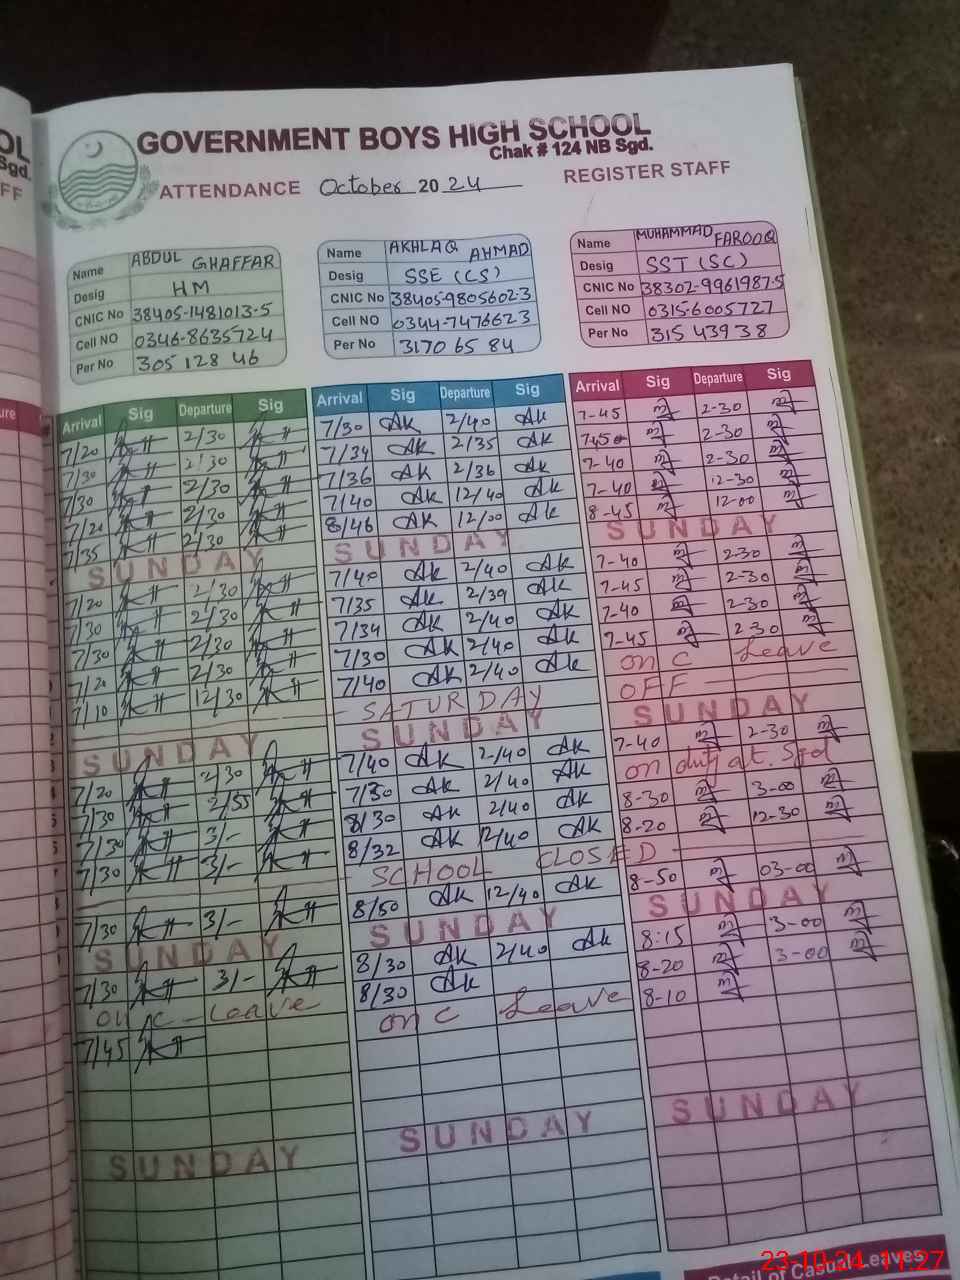 GOVERNMENT BOYS HIGH SCHOOL
Chak # 124 NB Sgd.
ATTENDANCE October 2024 REGISTER STAFF
Name ABDUL GHAFFAR
Desig HM
CNIC No 38405-1481013-5
Cell NO 0346-8635724
Per No 305 128 46
Arrival Sig Departure Sig
7/20 2/30
7/30 2/30
7/30 2/30
7/20 2/30
7/35 2/30
SUNDAY
7/20 2/30
7/30 2/30
7/30 2/30
7/20 2/30
7/10 12/30
SUNDAY
7/20 2/30
7/30 2/55
7/30 3/-
7/30 3/-
7/30 3/-
SUNDAY
7/30 3/-
on C - Leave
7/45
SUNDAY
Name AKHLAQ AHMAD
Desig SSE (CS)
CNIC No 38405-9805602-3
Cell NO 0344-7476623
Per No 3170 65 84
Arrival Sig Departure Sig
7/30 AK 2/40 AK
7/34 AK 2/35 AK
7/36 AK 2/36 AK
7/40 AK 12/40 AK
8/46 AK 12/00 AK
SUNDAY
7/40 AK 2/40 AK
7/35 AK 2/39 AK
7/34 AK 2/40 AK
7/30 AK 2/40 AK
7/40 AK 2/40 AK
SATURDAY
SUNDAY
7/40 AK 2/40 AK
7/30 AK 2/40 AK
8/30 AK 2/40 AK
8/32 AK 12/40 AK
SCHOOL CLOSED
8/50 AK 12/40 AK
SUNDAY
8/30 AK 2/40 AK
8/30 AK
on C Leave
SUNDAY
Name MUHAMMAD FAROOQ
Desig SST (SC)
CNIC No 38302-9961987-5
Cell NO 0315-6005727
Per No 315 439 38
Arrival Sig Departure Sig
7-45 2-30
7-45 2-30
7-40 2-30
7-40 12-30
8-45 12-00
SUNDAY
7-40 2-30
7-45 2-30
7-40 2-30
7-45 2-30
on C Leave
OFF
SUNDAY
7-40 2-30
on duty at. Sgd
8-30 3-00
8-20 12-30
8-50 03-00
SUNDAY
8:15 3-00
8-20 3-00
8-10
SUNDAY
Detail of Casual Leaves
23-10-24 11:27